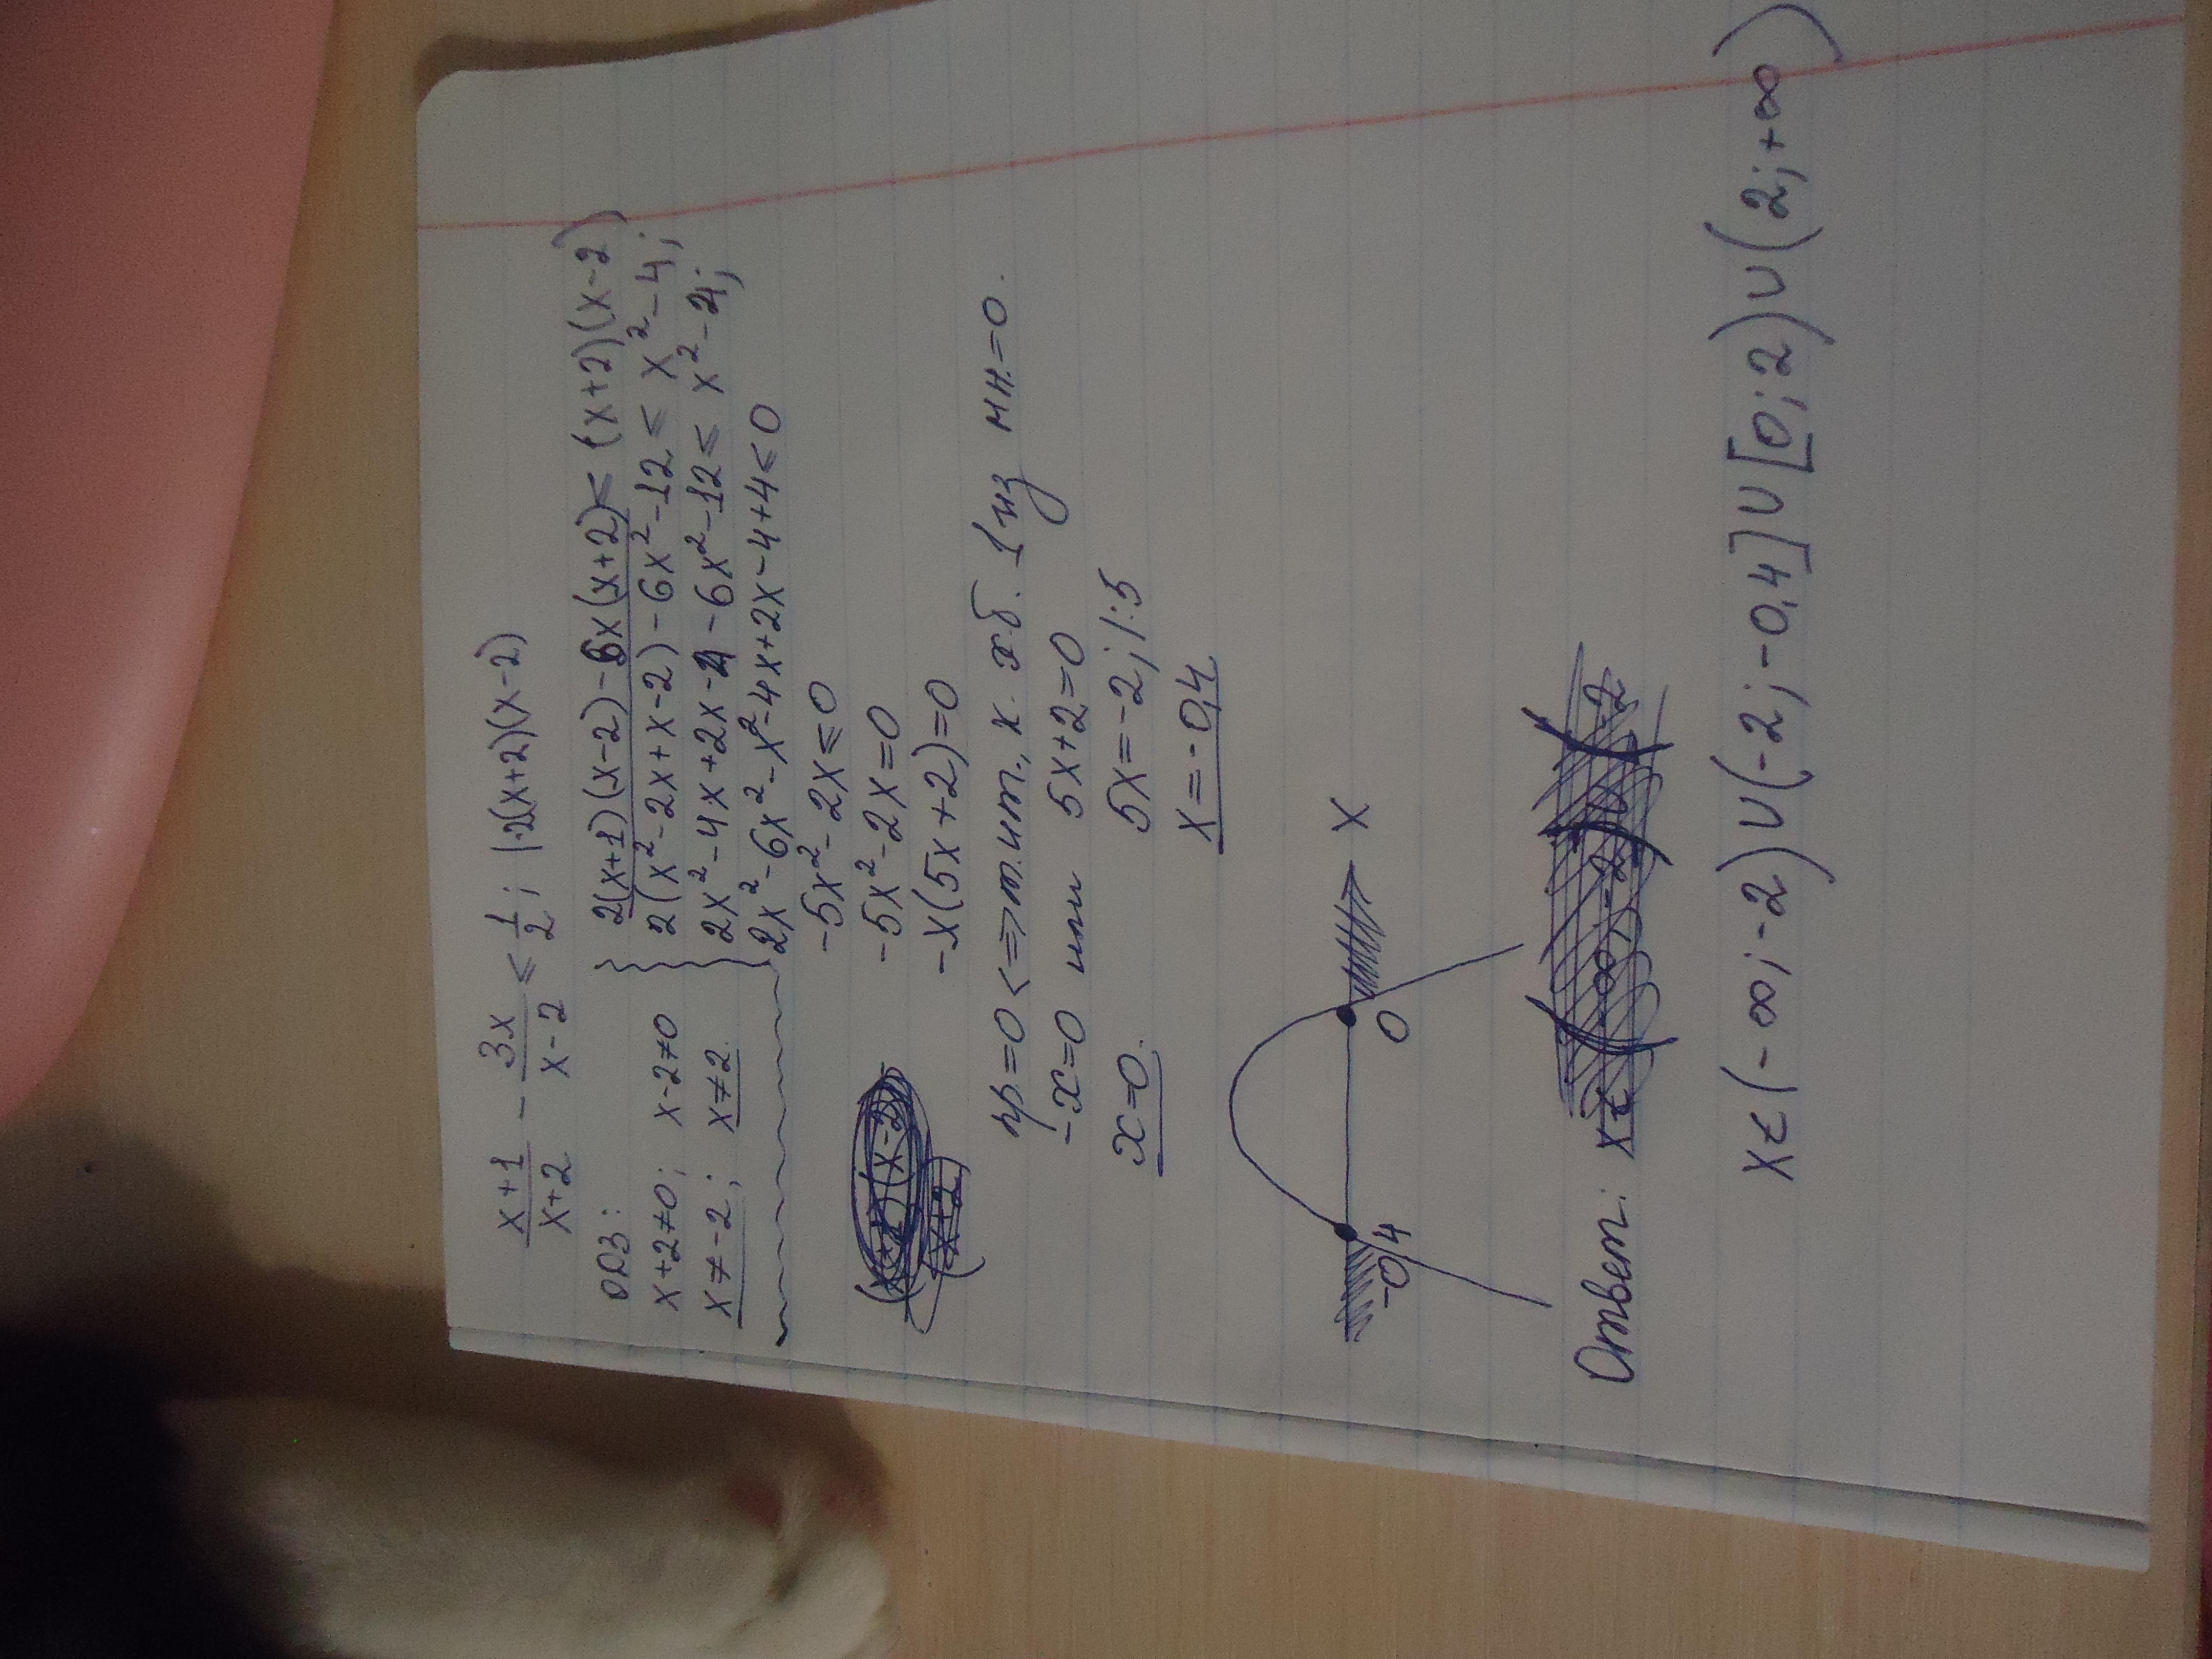 x+1/x+2 - 3x/x-2 ≤ 1/2; |·2(x+2)(x-2)
ОДЗ:
x+2≠0; x-2≠0
x≠-2; x≠2.
2(x+1)(x-2)-6x(x+2)≤(x+2)(x-2)
2(x²-2x+x-2)-6x²-12≤x²-4;
2x²-4x+2x-4-6x²-12≤x²-4;
2x²-6x²-x²-4x+2x-4+4≤0
-5x²-2x≤0
-5x²-2x=0
-x(5x+2)=0
пр.=0<=>т.ит., к. х.б. 1 из мн.=0.
-x=0 или 5x+2=0
x=0. 5x=-2; |:5
x=-0,4
-0,4 0 x
Ответ:
x∈(-∞;-2)∪(-2;-0,4]∪[0;2)∪(2;+∞)